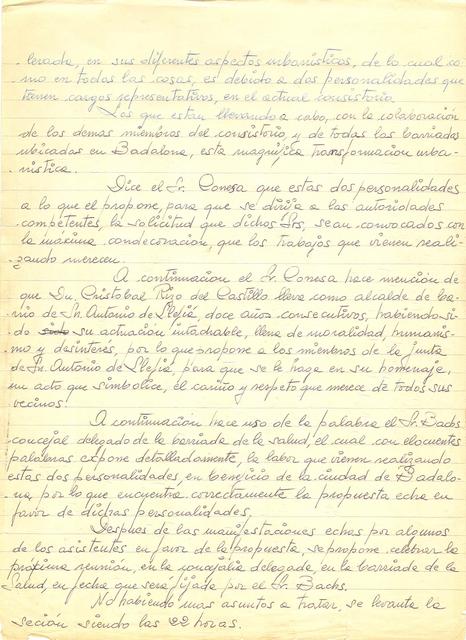 levada, en sus diferentes aspectos urbanisticos, de lo cual co-
mo en todas las cosas, es debido a dos personalidades que
tienen cargos representativos, en el actual consistorio.
Los que estan llevando a cabo, con la colaboración
de los demas miembros del consistorio, y de todas las barriadas
ubicadas en Badalona, esta magnifica transformacion urba-
nistica.
Dice el Sr. Conesa que estas dos personalidades
a lo que el propone, para que se dirija a las autoridades
competentes, la solicitud que dichos Srs, sean convocados con
la máxima condecoración, que los trabajos que vienen reali-
zando merecen.
A continuacion el Sr. Conesa hace mención de
que Dn. Cristobal Rigo del Castillo lleva como alcalde de ba-
rrio de Sn. Antonio de Llefiá, doce años consecutivos, habiendo si-
do su actuación intachable, llena de moralidad, humanis-
mo y desinterés, por lo que propone a los miembros de la junta
de Sn. Antonio de Llefiá, para que se le haga en su homenaje,
un acto que simbolice, el cariño y respeto que merece de todos sus
vecinos!
A continuación hace uso de la palabra el Sr. Bachs
concejal delegado de la barriada de la salud, el cual con elocuentes
palabras expone detalladamente, la labor que vienen realizando
estas dos personalidades, en beneficio de la ciudad de Badalo-
na, por lo que encuentra correctamente la propuesta echa en
favor de dichas personalidades.
Despues de las manifestaciones echas por algunos
de los asistentes en favor de la propuesta, se propone celebrar la
proxima reunión, en la concejalia delegada, en la barriada de la
Salud, en fecha que será fijada por el Sr. Bachs.
No habiendo mas asuntos a tratar, se levanta la
seción siendo las 22 horas.